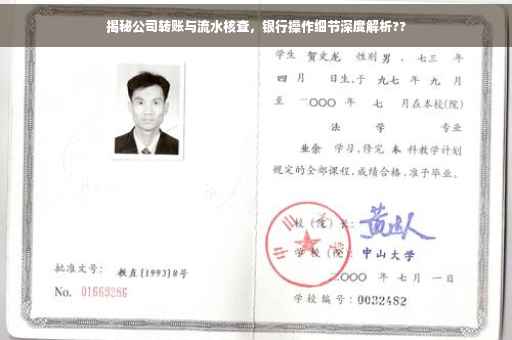 揭秘公司转账与流水核查，银行操作细节深度解析??
学生 贺文龙 性别 男，七三 年
四 月 日生，于 九七 年 九 月
至 二〇〇〇 年 七 月在本校(院)
法 学 专业
业余 学习，修完 本 科教学计划
规定的全部课程，成绩合格，准予毕业。
校(院)长：
学校(院)：中山大学
二〇〇〇 年 七 月 一 日
学校编号：0032482
批准文号：教直[1993]8号
No. 01663286